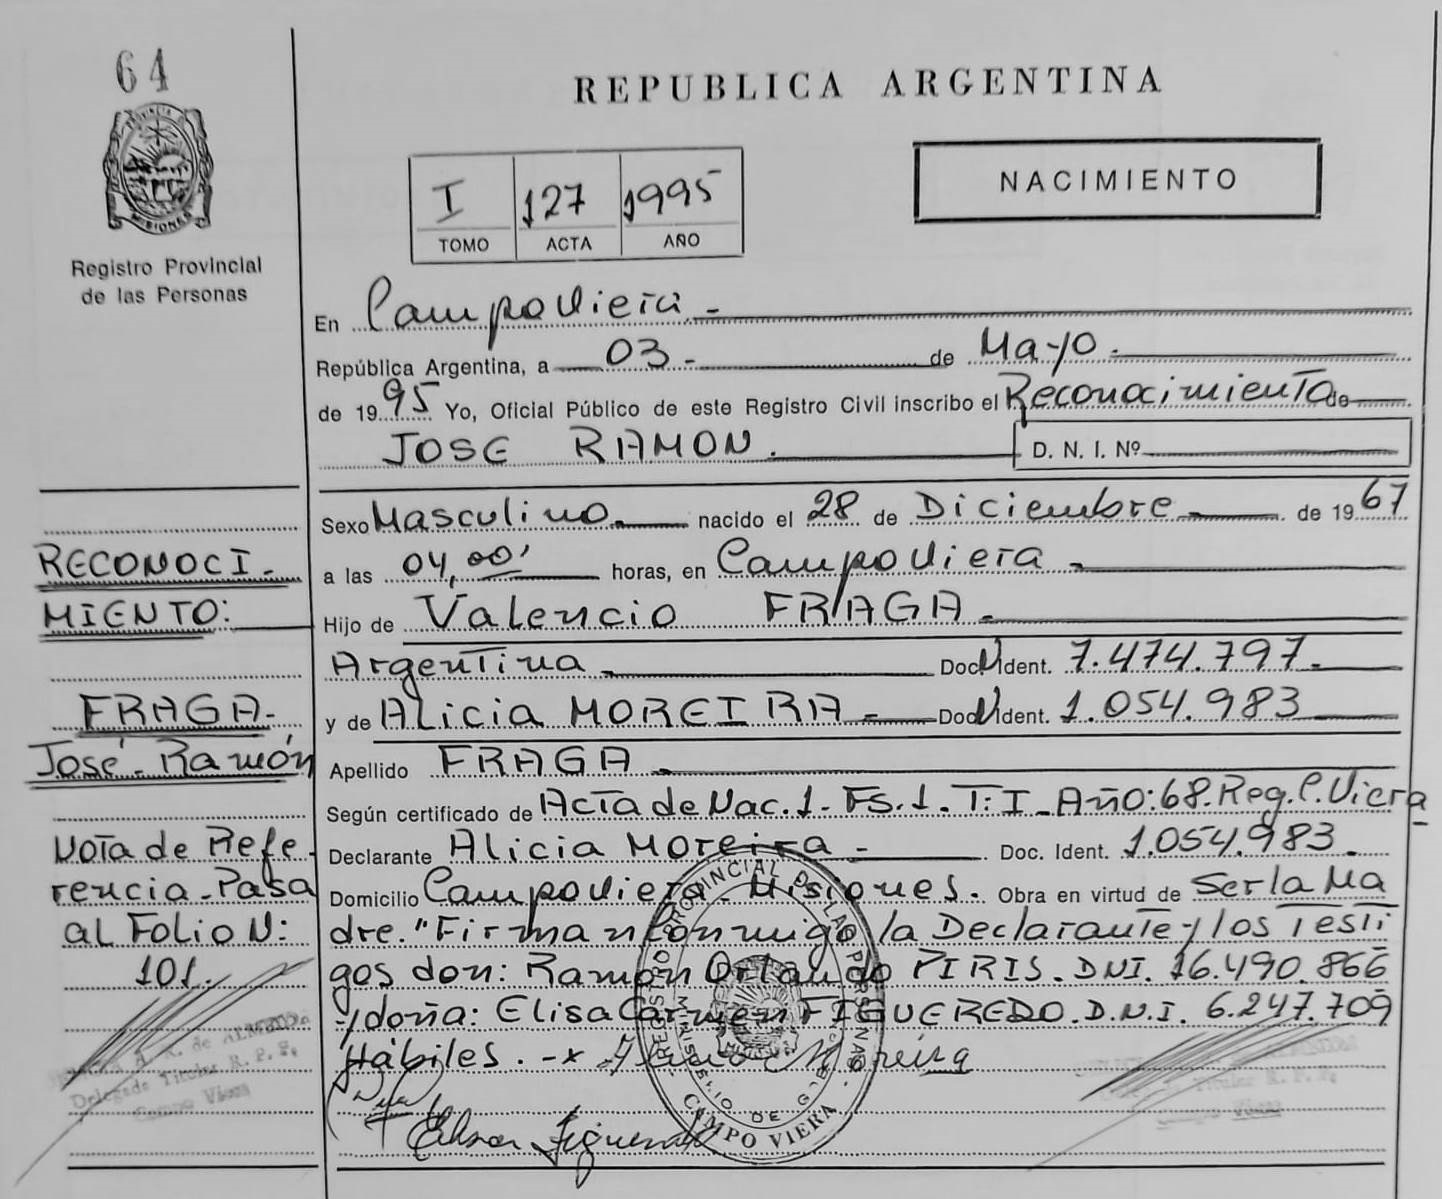 64
REPUBLICA ARGENTINA
PROVINCIA DE MISIONES
Registro Provincial
de las Personas
I 127 1995
TOMO ACTA AÑO
NACIMIENTO
En Campo Viera.-
República Argentina, a 03.- de Mayo.-
de 1995 Yo, Oficial Público de este Registro Civil inscribo el Reconocimiento de
JOSE RAMON. D. N. I. Nº
Sexo Masculino. nacido el 28 de Diciembre de 1967
a las 04,00' horas, en Campo Viera.
Hijo de Valencio FRAGA.
Argentina. Doc. Ident. 7.474.797.
y de Alicia MOREIRA. Doc. Ident. 1.054.983
Apellido FRAGA.
Según certificado de Acta de Nac. 1. Fs. 1. T: I. Año: 68. Reg. C. Viera
Declarante Alicia Moreira.- Doc. Ident. 1.054.983.
Domicilio Campo Viera. Misiones. Obra en virtud de Ser la Ma
dre. "Firman conmigo la Declarante y los Testi
gos don: Ramon Orlando PIRIS. DNI. 16.490.866
y doña: Elisa Carmen FIGUEREDO. D.N.I. 6.247.709
Hábiles.-x
RECONOCI-
MIENTO:
FRAGA-
José-Ramón
Nota de Refe-
rencia-Pasa
al Folio N:
101.
A. R. de ALMEIDA
Delegada Titular R. P. P.
Campo Viera
REGISTRO PROVINCIAL DE LAS PERSONAS
MINISTERIO DE
CAMPO VIERA